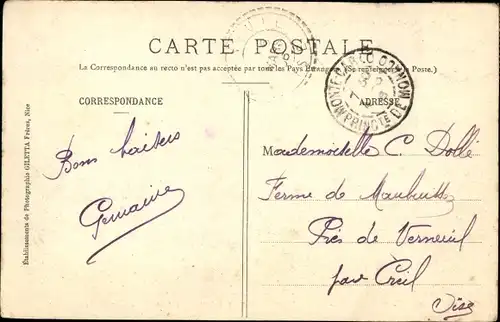 CARTE POSTALE
La Correspondance au recto n'est pas acceptée par tous les Pays Etrangers (Se renseigner à la Poste.)
CORRESPONDANCE
ADRESSE
MONTE-CARLO
PRINCTÉ DE MONACO
Bons baisers
Germaine
Mademoiselle C. Dollé
Ferme de Maubuisson
Près de Verneuil
par Creil
Oise
Établissements de Photographie GILETTA Frères, Nice